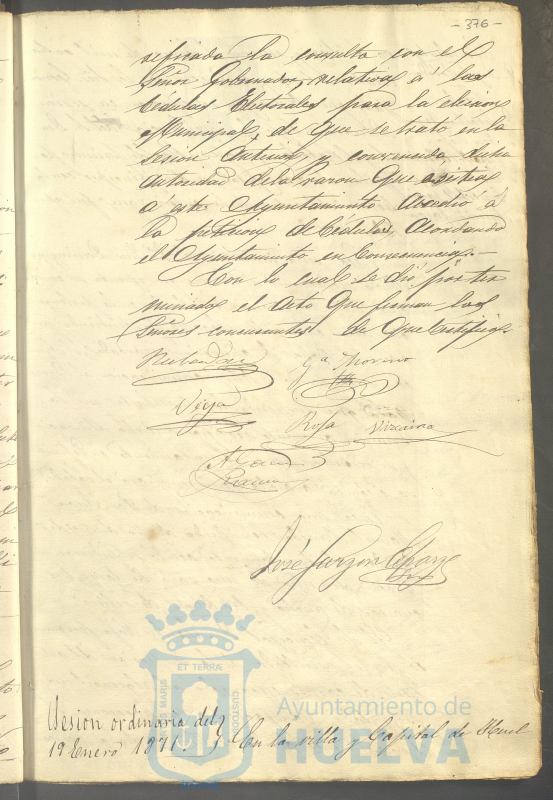 - 376 -
reficada la consulta con el
Señor Gobernador, relativa á las
Cedulas Electorales para la eleccion
Municipal, de que se trató en la
Sesion anterior, y convencida dicha
autoridad de la razon que asistia
a este Ayuntamiento accedió á
la peticion de Cedulas, acordando
el Ayuntamiento en consecuencia.-
Con lo cual se dió por ter
minado el acto que firman los
Señores concurrentes de que certifico.
Gª Moreno
Vega
Rosa Vizcaino
José Garzon
ET TERRÆ
MARIS
CUSTODIA
Ayuntamiento de
HUELVA
Sesion ordinaria del
19 Enero 1871. En la villa y Capital de Huel